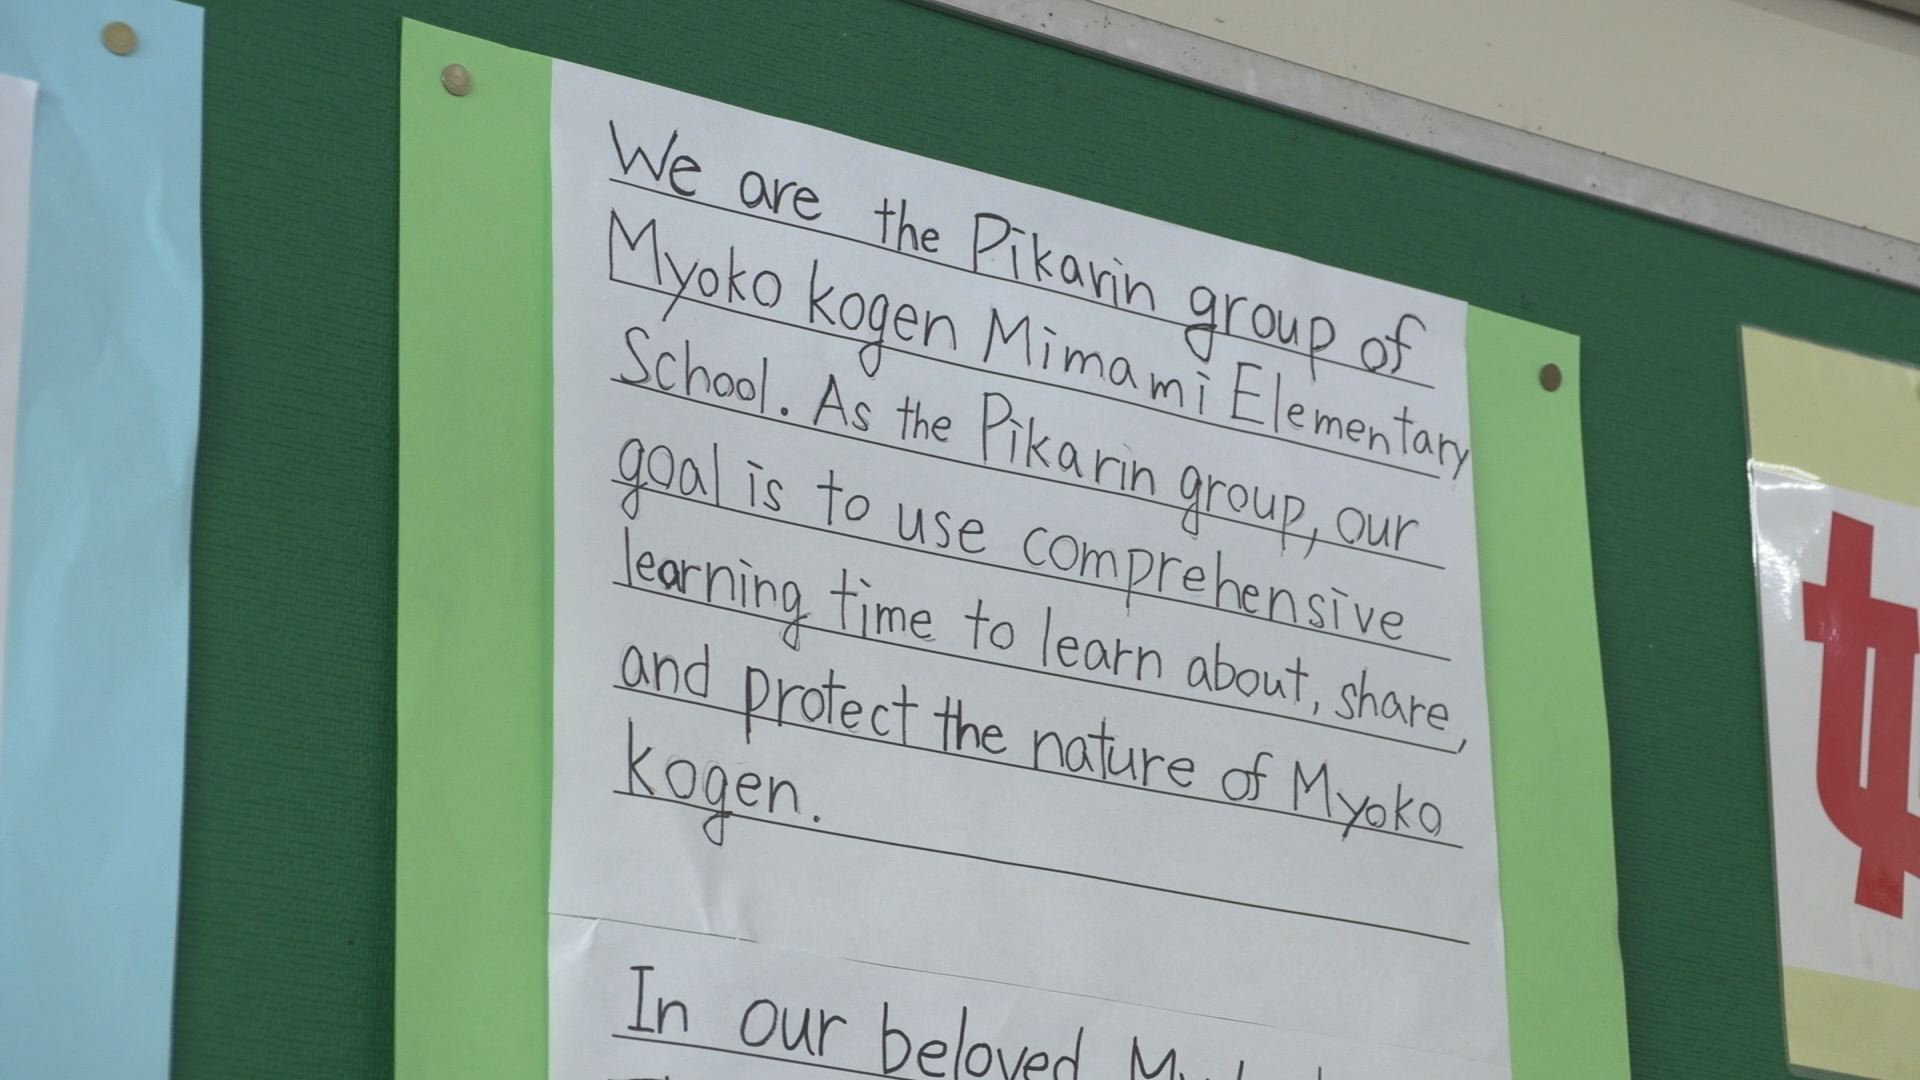 We are the Pikarin group of
Myoko kogen Mimami Elementary
School. As the Pikarin group, our
goal is to use comprehensive
learning time to learn about, share,
and protect the nature of Myoko
kogen.
In our beloved